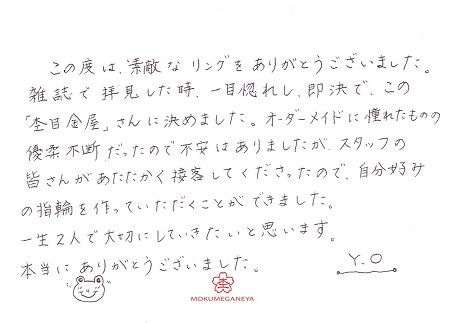 この度は、素敵なリングをありがとうございました。
雑誌で拝見した時、一目惚れし、即決で、この
「杢目金屋」さんに決めました。オーダーメイドに憧れたものの
優柔不断だったので不安はありましたが、スタッフの
皆さんがあたたかく接客してくださったので、自分好み
の指輪を作っていただくことができました。
一生2人で大切にしていきたいと思います。
本当にありがとうございました。
Y.O
MOKUMEGANEYA